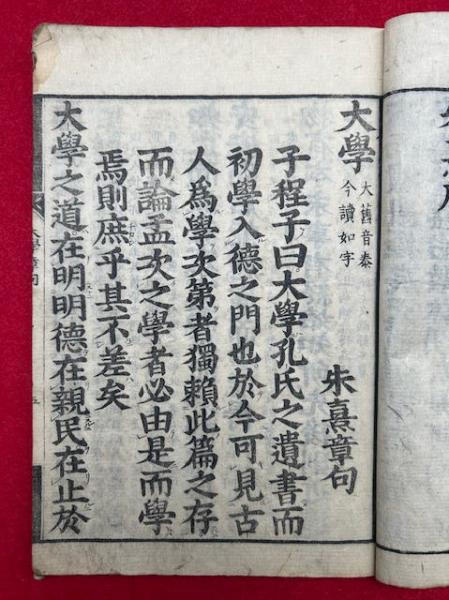 大學 大舊音泰
今讀如字
朱熹章句
子程子曰大學孔氏之遺書而
初學入德之門也於今可見古
人爲學次第者獨賴此篇之存
而論孟次之學者必由是而學
焉則庶乎其不差矣
大學之道在明明德在親民在止於